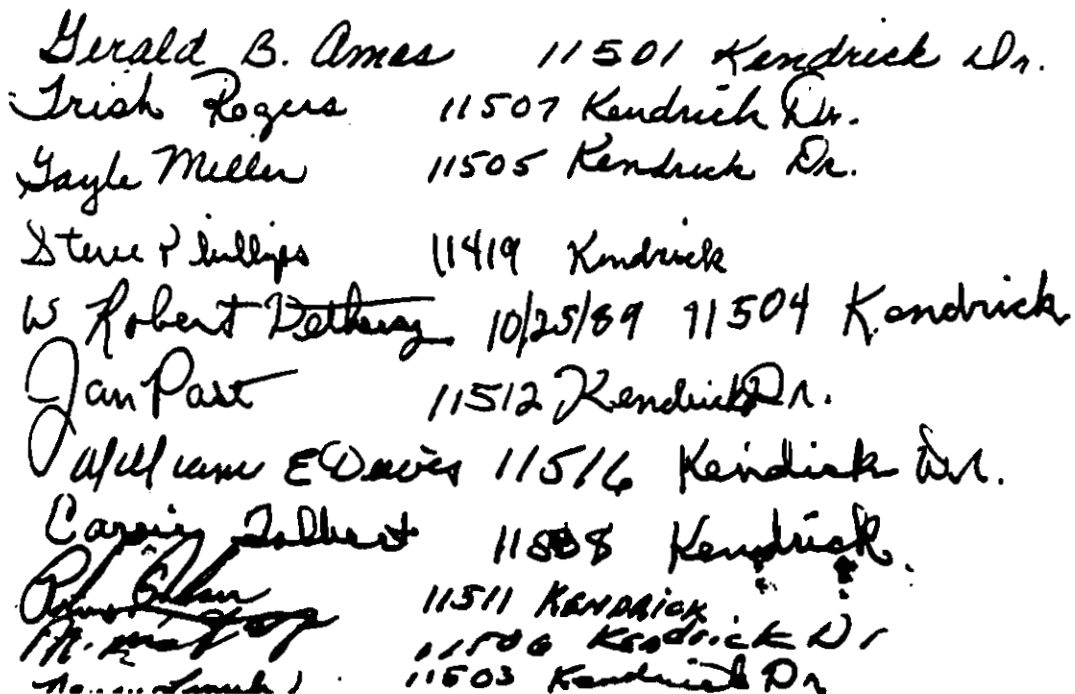 Gerald B. Ames 11501 Kendrick Dr.
Trish Rogers 11507 Kendrick Dr.
Gayle Miller 11505 Kendrick Dr.
Steve Phillips 11419 Kendrick
W Robert 10/25/89 11504 Kendrick
Jan Past 11512 Kendrick Dr.
William E Davis 11516 Kendrick Dr.
Carrie Tolbert Kendrick
11511 KENDRICK
M. 11506 Kendrick Dr
11503 Kendrick Dr